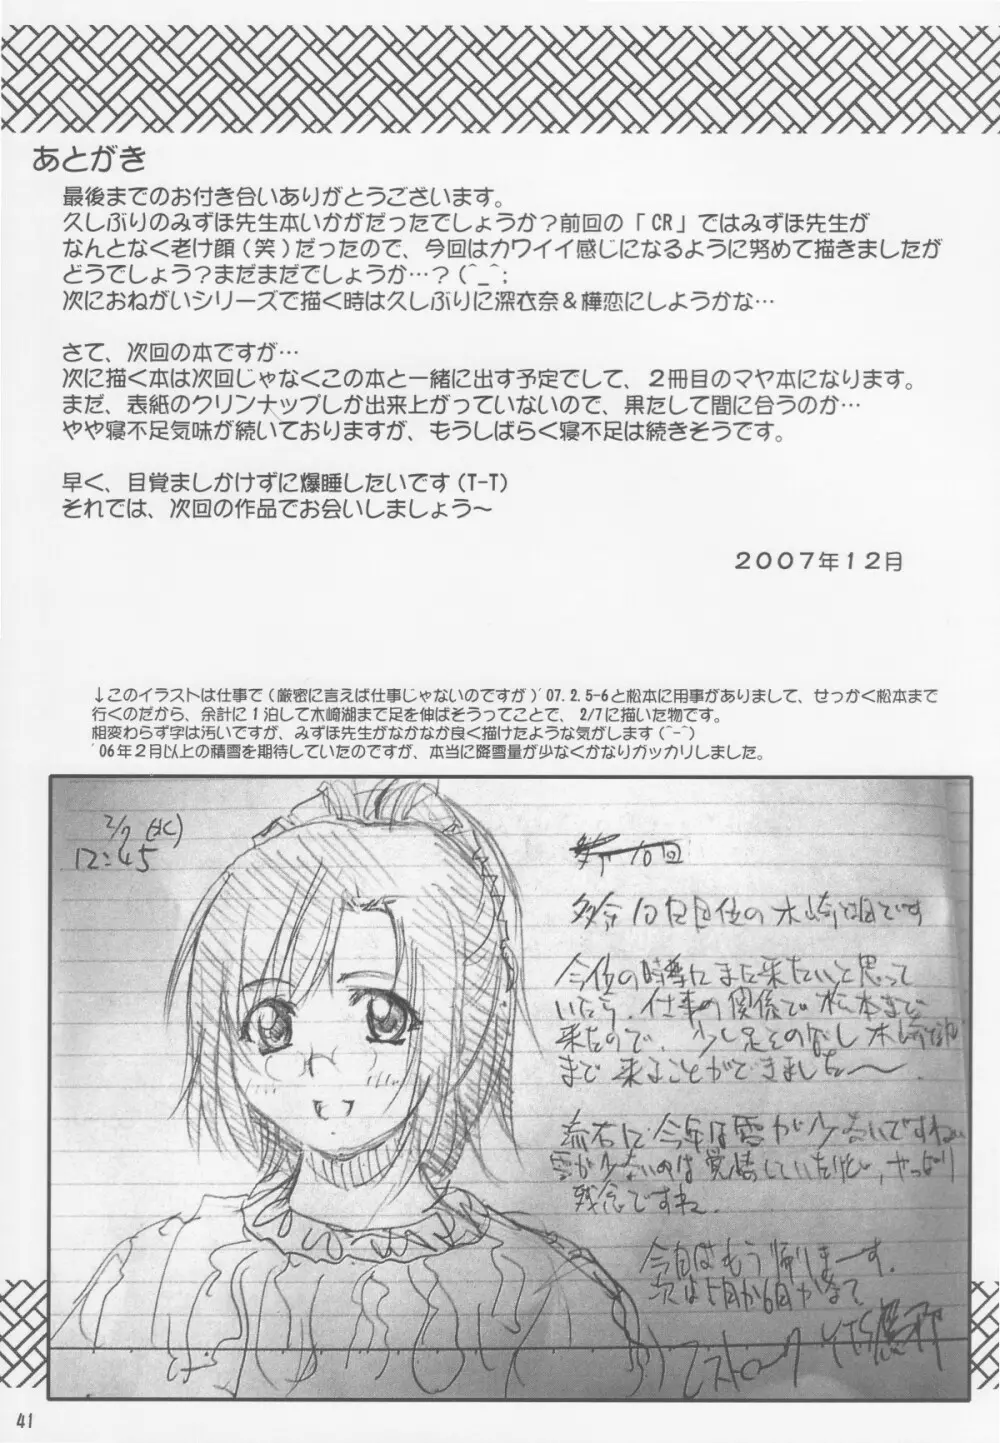 あとがき
最後までのお付き合いありがとうございます。
久しぶりのみずほ先生本いかがだったでしょうか？前回の「CR」ではみずほ先生が
なんとなく老け顔(笑)だったので、今回はカワイイ感じになるように努めて描きましたが
どうでしょう？まだまだでしょうか…？(^_^;
次におねがいシリーズで描く時は久しぶりに深衣奈＆樺恋にしようかな…
さて、次回の本ですが…
次に描く本は次回じゃなくこの本と一緒に出す予定でして、２冊目のマヤ本になります。
まだ、表紙のクリンナップしか出来上がっていないので、果たして間に合うのか…
やや寝不足気味が続いておりますが、もうしばらく寝不足は続きそうです。
早く、目覚ましかけずに爆睡したいです(T-T)
それでは、次回の作品でお会いしましょう～
２００７年１２月
↓このイラストは仕事で(厳密に言えば仕事じゃないのですが)'07.2.5-6と松本に用事がありまして、せっかく松本まで
行くのだから、余計に１泊して木崎湖まで足を伸ばそうってことで、2/7に描いた物です。
相変わらず字は汚いですが、みずほ先生がなかなか良く描けたような気がします(^-^)
'06年２月以上の積雪を期待していたのですが、本当に降雪量が少なくかなりガッカリしました。
2/7(水)
12:45
10回
多分10回目位の木崎湖です
今位の時期にまた来たいと思って
いたら、仕事の関係で松本まで
来たので、少し足をのばし木崎湖
まで来ることができました〜
流石に今年は雪が少ないですねぃ
雪が少ないのは覚悟していたけど、やっぱり
残念ですね.
今日はもう帰りまーす.
次は5月か6月かなて
41